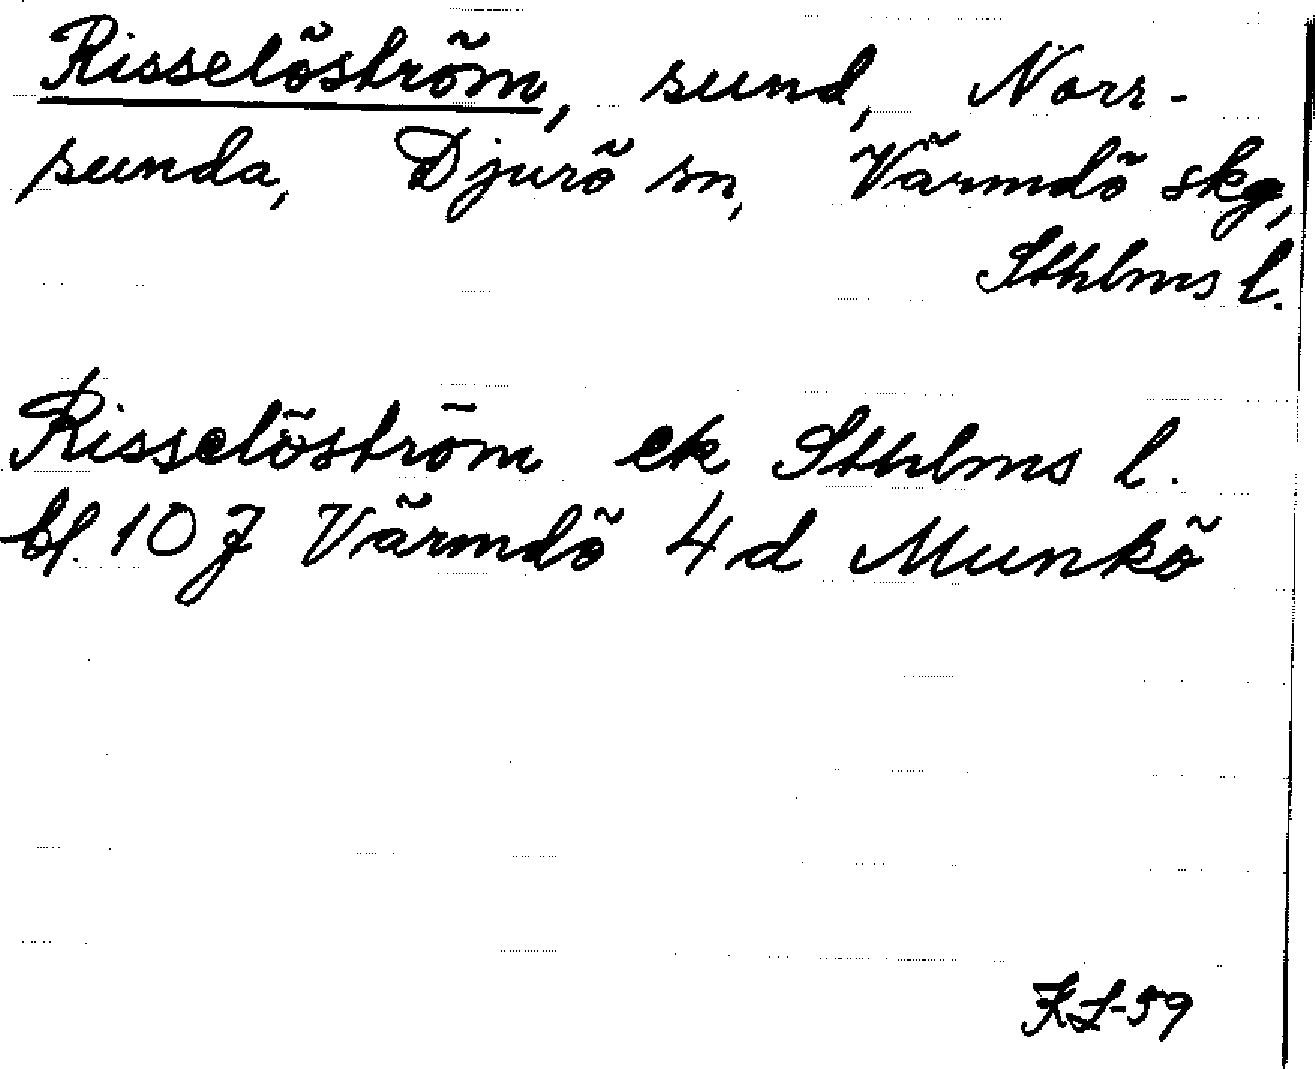 Risselöström, sund, Norr-
sunda, Djurö sn, Värmdö skg,
Sthlms l.
Risselöström ek Sthlms l.
bl. 10 J Värmdö 4 d Munkö
KL-59